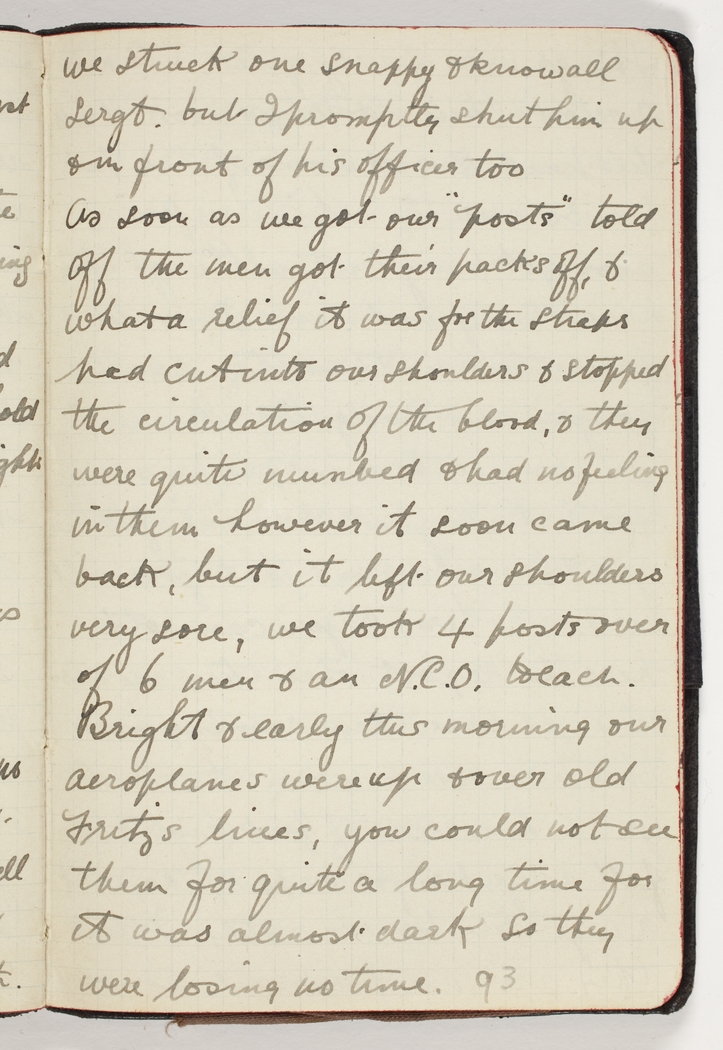 we struck one snappy & knowall
Sergt. but I promptly shut him up
& in front of his officer too
As soon as we got our "posts" told
off the men got their packs off, &
what a relief it was for the straps
had cut into our shoulders & stopped
the circulation of the blood, & they
were quite numbed & had no feeling
in them however it soon came
back, but it left our shoulders
very sore, we took 4 posts over
of 6 men & an N.C.O. to each.
Bright & early this morning our
aeroplanes were up & over old
Fritzs lines, you could not see
them for quite a long time for
it was almost dark So they
were losing no time. 93